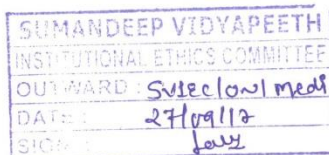 SUMANDEEP VIDYAPEETH
INSTITUTIONAL ETHICS COMMITTEE
OUTWARD : SVIEC/ON/Medi
DATE : 27/09/17
SIGN :